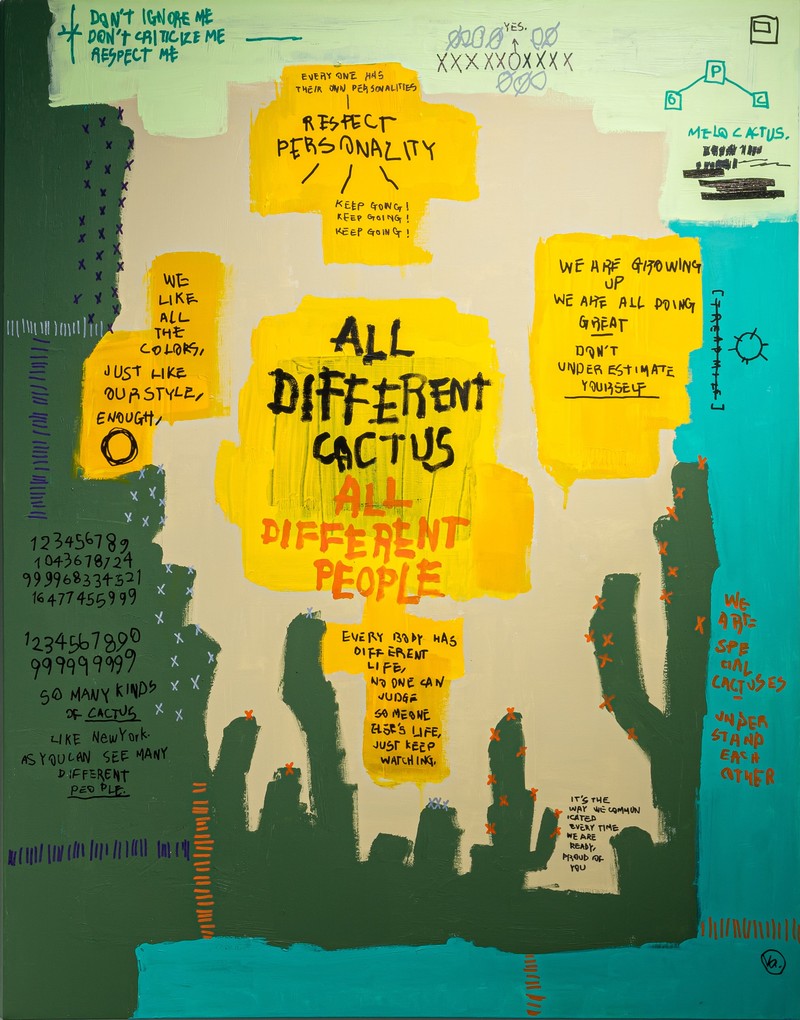 DON'T IGNORE ME
DON'T CRITICIZE ME
RESPECT ME
YES.
XXXXXOXXXX
P
6 C
MELO CACTUS.
EVERY ONE HAS
THEIR OWN PERSONALITIES
RESPECT
PERSONALITY
KEEP GOING!
KEEP GOING!
KEEP GOING!
WE
LIKE
ALL
THE
COLORS,
JUST LIKE
OUR STYLE,
ENOUGH,
WE ARE GROWING
UP
WE ARE ALL DOING
GREAT
DON'T
UNDER ESTIMATE
YOURSELF
ALL
DIFFERENT
CACTUS
ALL
DIFFERENT
PEOPLE
123456789
1043678724
999968334521
16477455999
1234567890
999999999
SO MANY KINDS
OF CACTUS
LIKE NewYork.
AS YOU CAN SEE MANY
DIFFERENT
PEOPLE.
EVERY BODY HAS
DIFFERENT
LIFE,
NO ONE CAN
JUDGE
SOMEONE
ELSE'S LIFE,
JUST KEEP
WATCHING.
WE
ARE
SPE
CIAL
CACTUSES
UNDER
STAND
EACH
OTHER
IT'S THE
WAY WE COMMUN
ICATED
EVERY TIME
WE ARE
READY,
PROUD OF
YOU
Va.